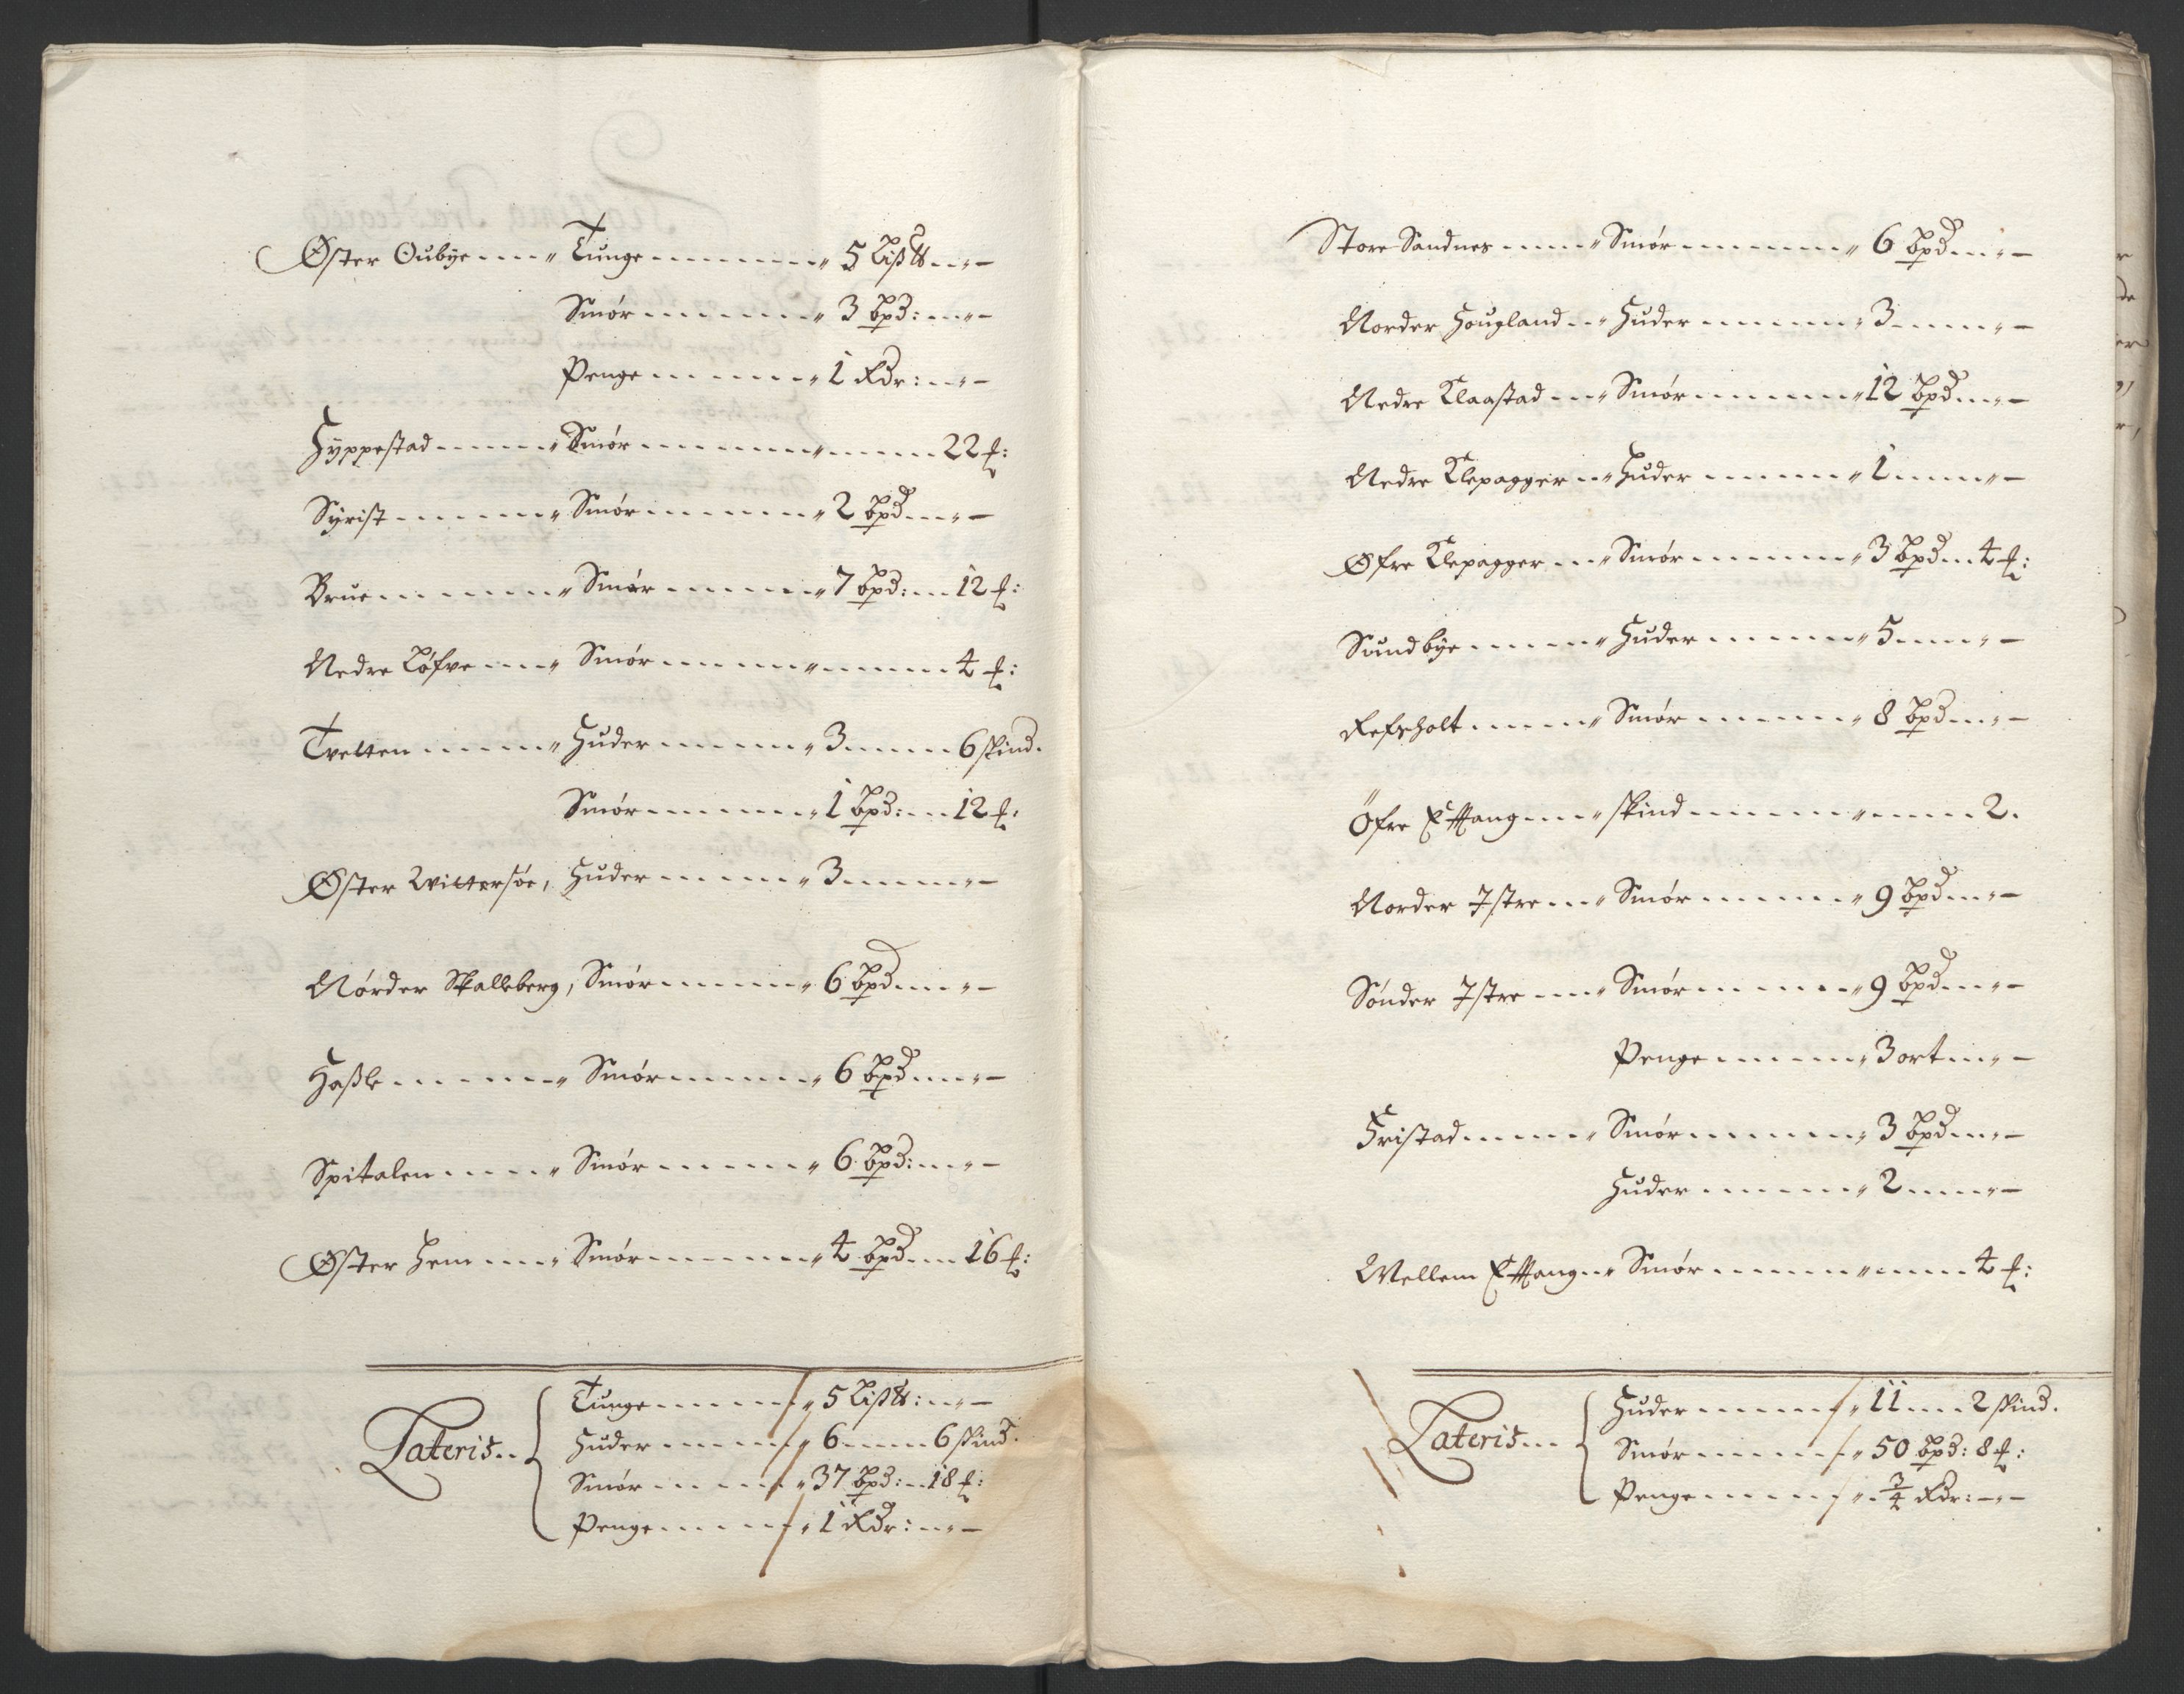 Øster Oubÿe . . . . „ Tunge . . . . . . . . „ 5 Lisß ℔ . . „ —
Smør . . . . . . . . „ 3 bpd: . . . „ —
Penge . . . . . . . „ 1 Rdr: . . „ —
Hyppestad . . . . . „ Smør . . . . . . . . . „ . . . . . 22 ℔:
Sÿrist . . . . . . . „ Smør . . . . . . . . „ 2 bpd . . . „ —
Brue . . . . . . . . „ Smør . . . . . . . „ 7 bpd: . . . 12 ℔:
Nedre Løfve . . . . „ Smør . . . . . . . „ . . . . . . 4 ℔:
Tvetten . . . . . . „ Huder . . . . . . . „ 3 . . . . . 6 skind.
Smør . . . . . . . . „ 1 bpd: . . . 12 ℔:
Øster Wittersøe, Huder . . . . . . „ 3 . . . . . . „ —
Nørder Skalleberg, Smør . . . . . . „ 6 bpd . . . . „ —
Haßle . . . . . . . „ Smør . . . . . . . „ 6 bpd . . . . „ —
Spitalen . . . . . „ Smør . . . . . . . „ 6 bpd: . . . „ —
Øster Hem . . . . „ Smør . . . . . . . . „ 4 bpd . . . 16 ℔:
Lateris . .
Tunge . . . . . . . „ 5 Liß ℔: . . „ —
Huder . . . . . . . „ 6 . . . . . 6 skind.
Smør . . . . . . . „ 37 bpd: . . 18 ℔:
Penge . . . . . . . „ 1 Rdr: . . „ —
Store Sandnes . . . . . „ Smør . . . . . . . . „ 6 bpd . . . „ —
Norder Hougland . . „ Huder . . . . . . . „ 3 . . . . . „ —
Nedre Klaastad . . . „ Smør . . . . . . . „ 12 bpd . . . „ —
Nedre Klepagger . . „ Huder . . . . . . „ 1 . . . . . „ —
Øfre Klepagger . . . „ Smør . . . . . . . „ 3 bpd . . 4 ℔:
Sundbÿe . . . . . . „ Huder . . . . . . . „ 5 . . . . . „ —
Refsholt . . . . . . „ Smør . . . . . . . „ 8 bpd . . . „ —
Öfre Efftang . . . . „ skind . . . . . . . . „ . . . . . 2.
Norder Istre . . . „ Smør . . . . . . . „ 9 bpd . . . „ —
Sønder Istre . . . . „ Smør . . . . . . . „ 9 bpd . . . „ —
Penge . . . . . . . „ 3 ort . . . „ —
Fristad . . . . . . . „ Smør . . . . . . . „ 3 bpd . . . „ —
Huder . . . . . . . „ 2 . . . . . „ —
Mellem Efftang . . „ Smør . . . . . . . „ . . . . . 4 ℔:
Lateris . . .
Huder . . . . . . . „ 11 . . . . 2 skind.
Smør . . . . . . . „ 50 bpd: 8 ℔:
Penge . . . . . . . „ ¾ Rdr: — „ —